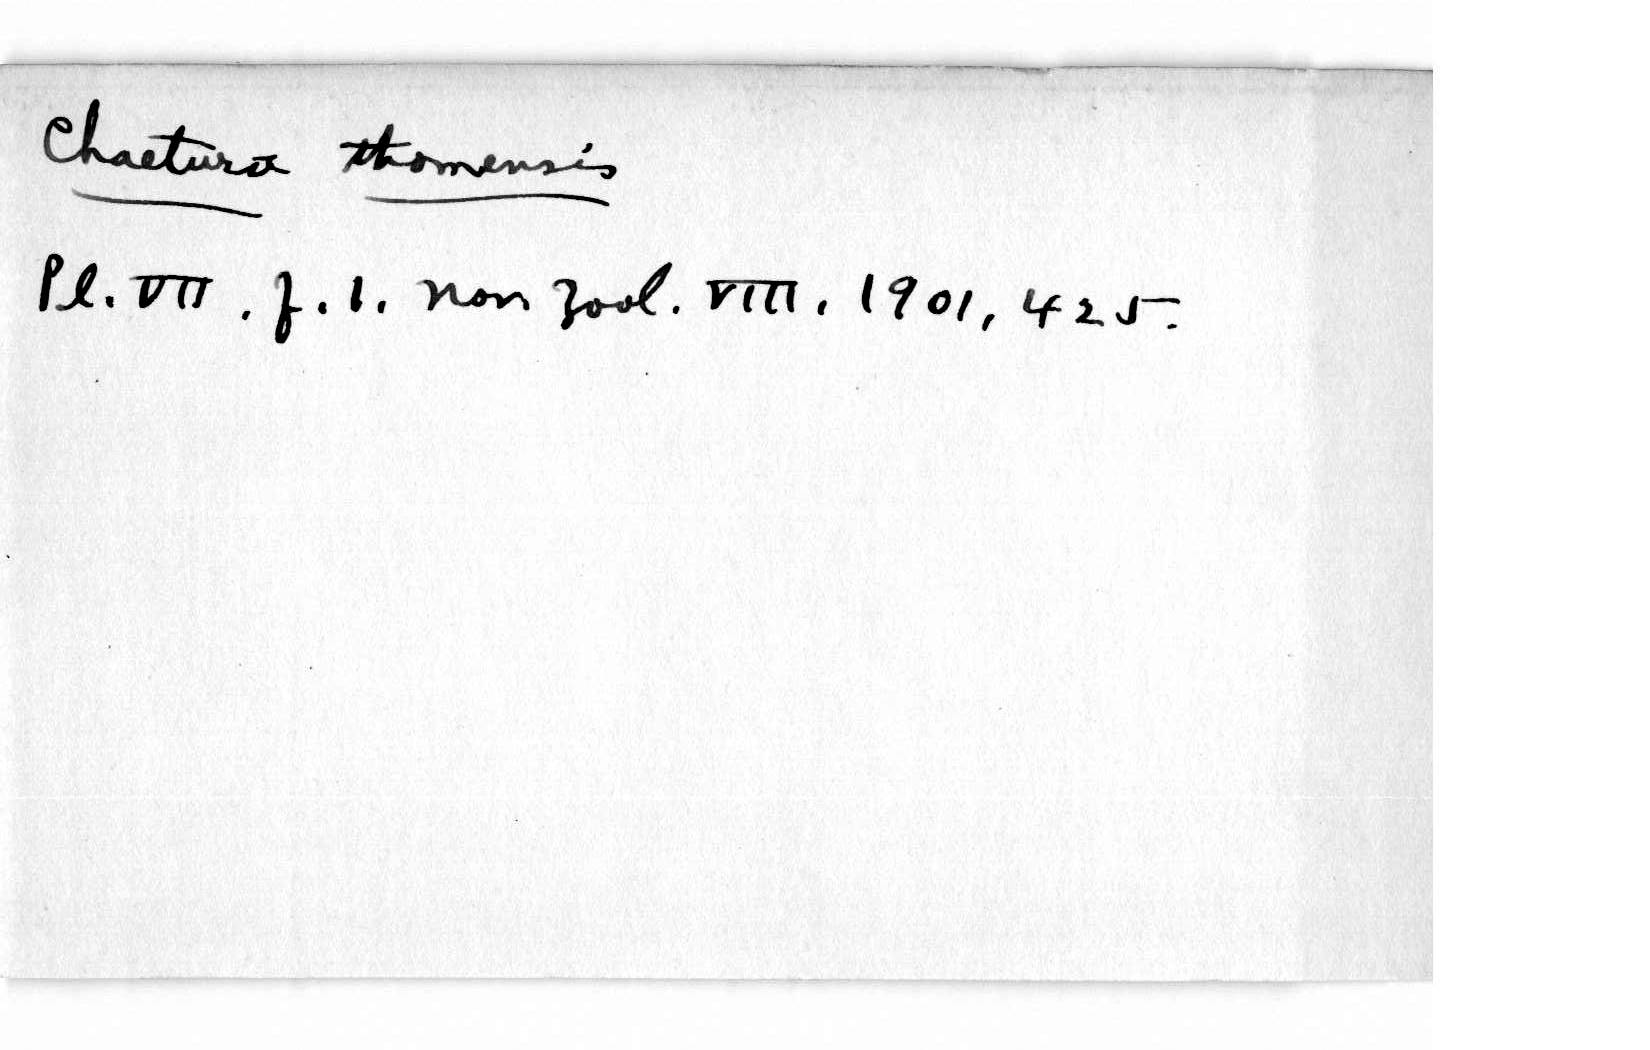 Chaetura thomensis
Pl. VII. f. 1. Nov Zool. VIII, 1901, 425.